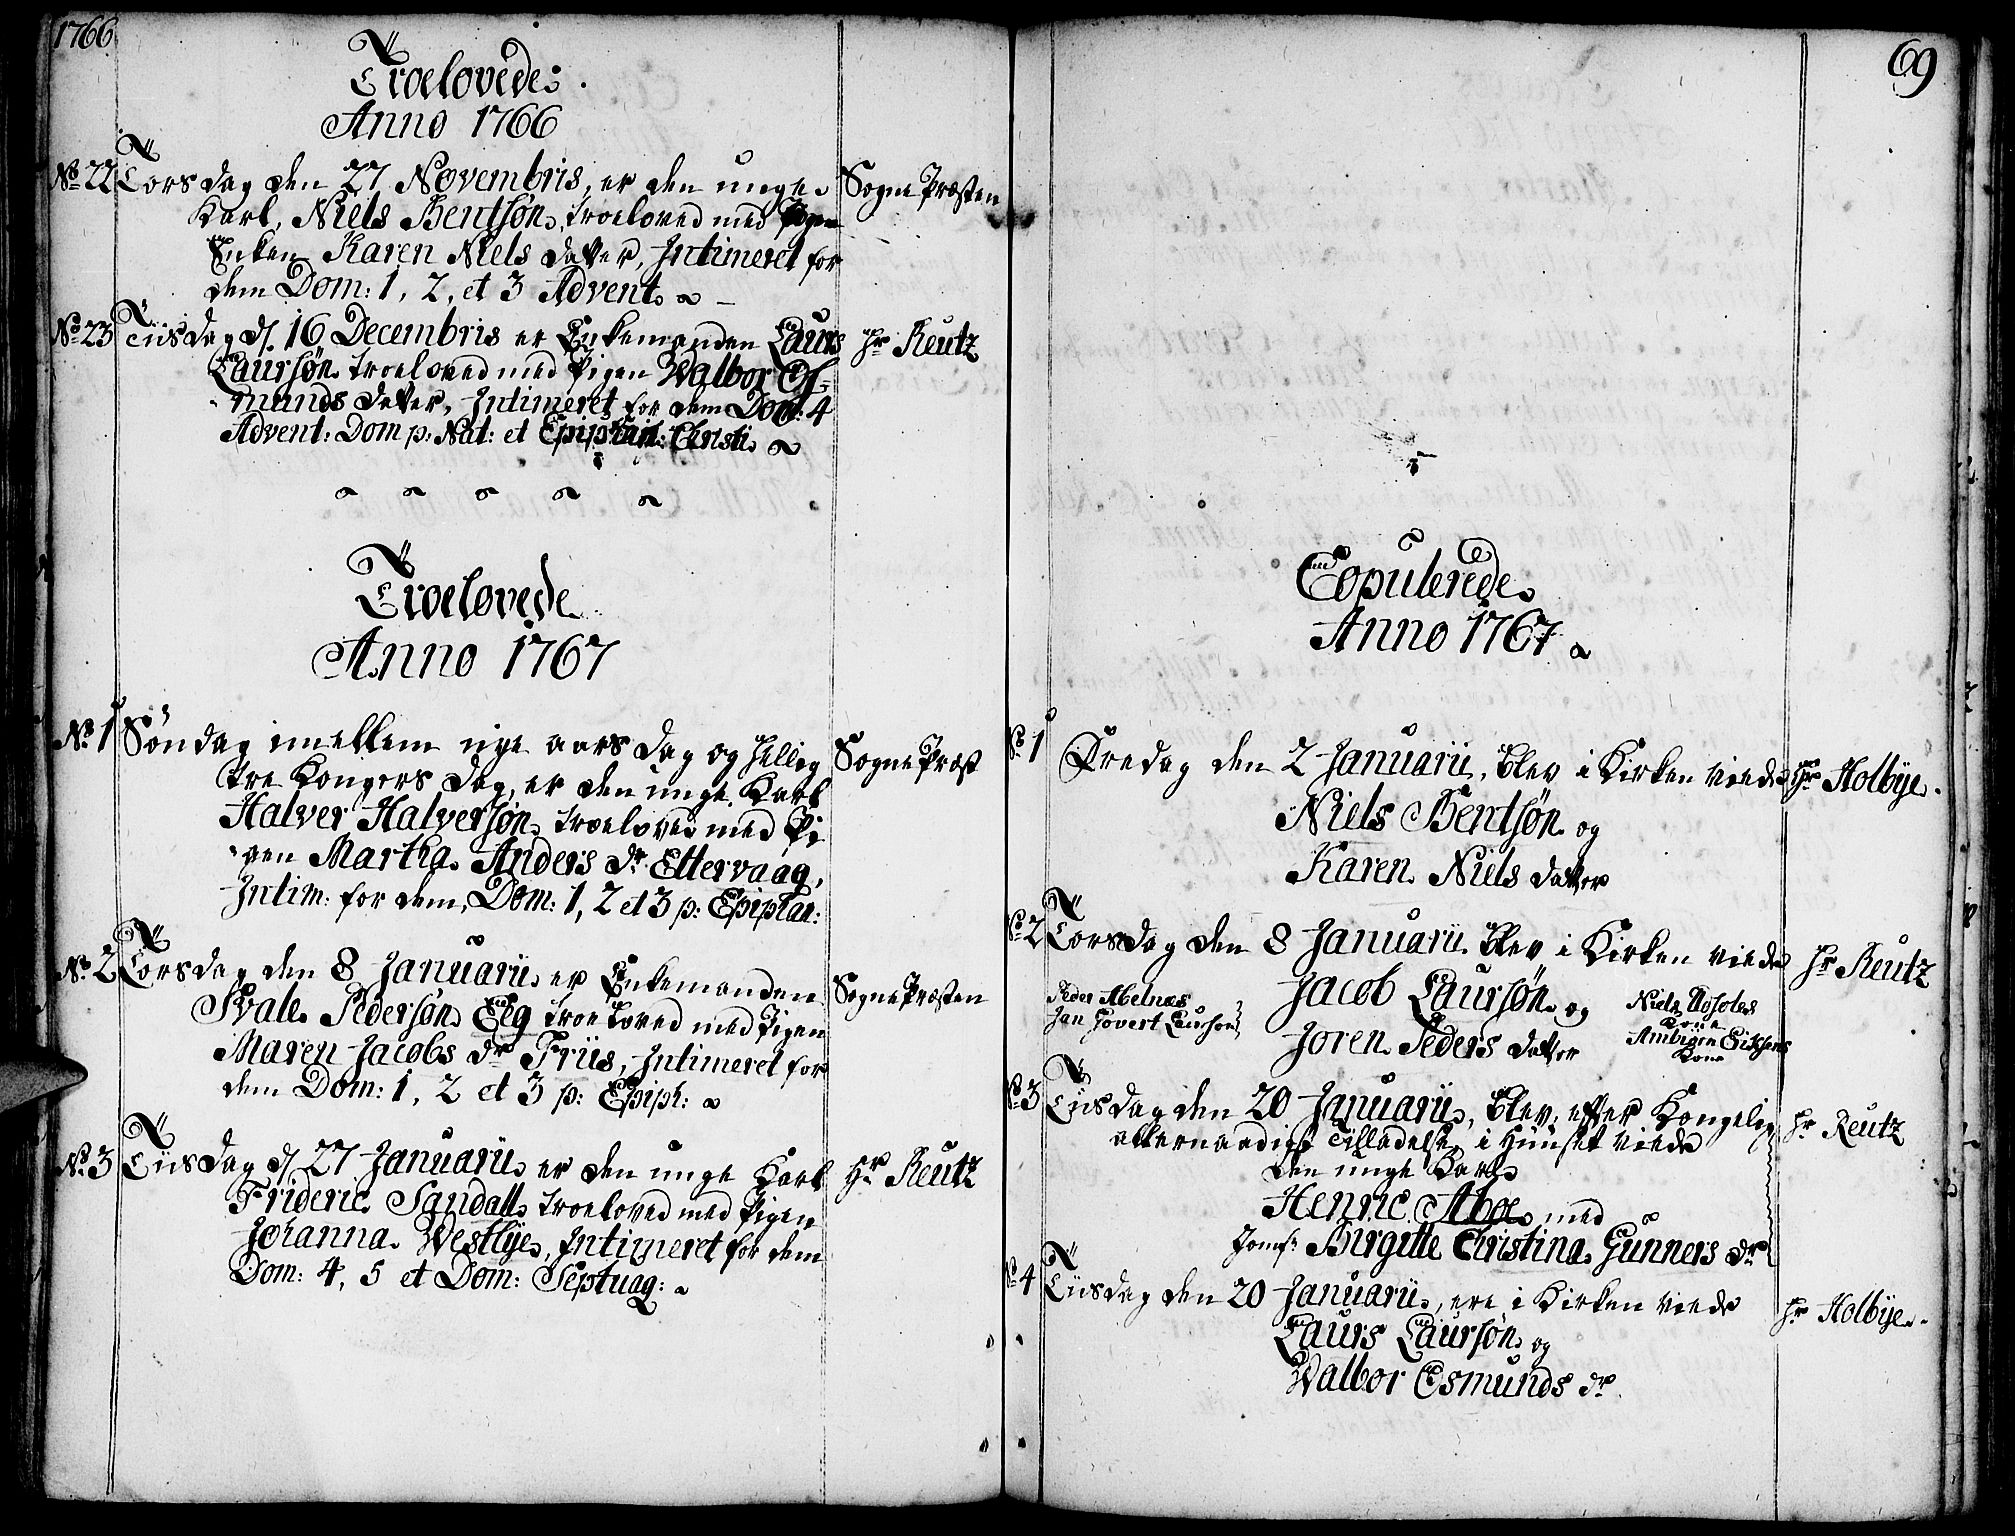 1766
Troelovede
Anno 1766
No 22 Torsdag den 27 Novembris, er den unge Sogne Præsten
Karl, Niels Bentsøn, troeloved med
Enken Karen Niels datter, Intimeret for
dem Dom: 1, 2, et 3 Advent.
No 23 Tiisdag d. 16 Decembris er Enkemanden Laurs Hr Reutz
Laursøn troeloved med Pigen Walbor Es-
munds datter, Intimeret for dem Dom: 4
Advent: Dom p: Nat: et Epiphan: Christi.
Troelovede
Anno 1767
No 1 Søndag imellem nye aars dag og Hellig Sogne Præst
tre Kongers dag, er den unge Karl
Halver Halversøn troeloved med Pi
gen Martha Anders dr Ettervaag,
Intim: for dem, Dom: 1, 2 et 3 p: Epiphan:
No 2 Torsdag den 8 Januarii er Enkemanden Sogne Præsten
Svale Pedersøn Eeg troeloved med Pigen
Maren Jacobs dr Friis, Intimeret for
dem Dom: 1, 2 et 3 p: Epiph:
No 3 Tiisdag d. 27 Januarii er den unge Karl Hr Reutz
Frideric Sandall troeloved med Pigen
Johanna Westlye, Intimeret for dem
Dom: 4, 5 et Dom: Septuag:
69
Copulerede
Anno 1767
No 1 Fredag den 2 Januarii, blev i Kirken viede Hr Holbye.
Niels Bentsøn og
Karen Niels datter
No 2 Torsdag den 8 Januarii blev i Kirken viede Hr Reutz
Peder Abelnæs
Jan Govert
Jacob Laursøn og
Joren Peders datter
Niels
Kone
Kone
No 3 Tiisdag den 20 Januarii, blev efter Kongelig Hr Reutz
allernaadigst Tilladelse i Huuset viede
den unge Karl
Henric Aboe med
Jomfr Birgitte Christina Gunners dr
No 4 Tiisdag den 20 Januarii, ere i Kirken viede Hr Holbye.
Laurs Laursøn og
Walbor Esmunds dr